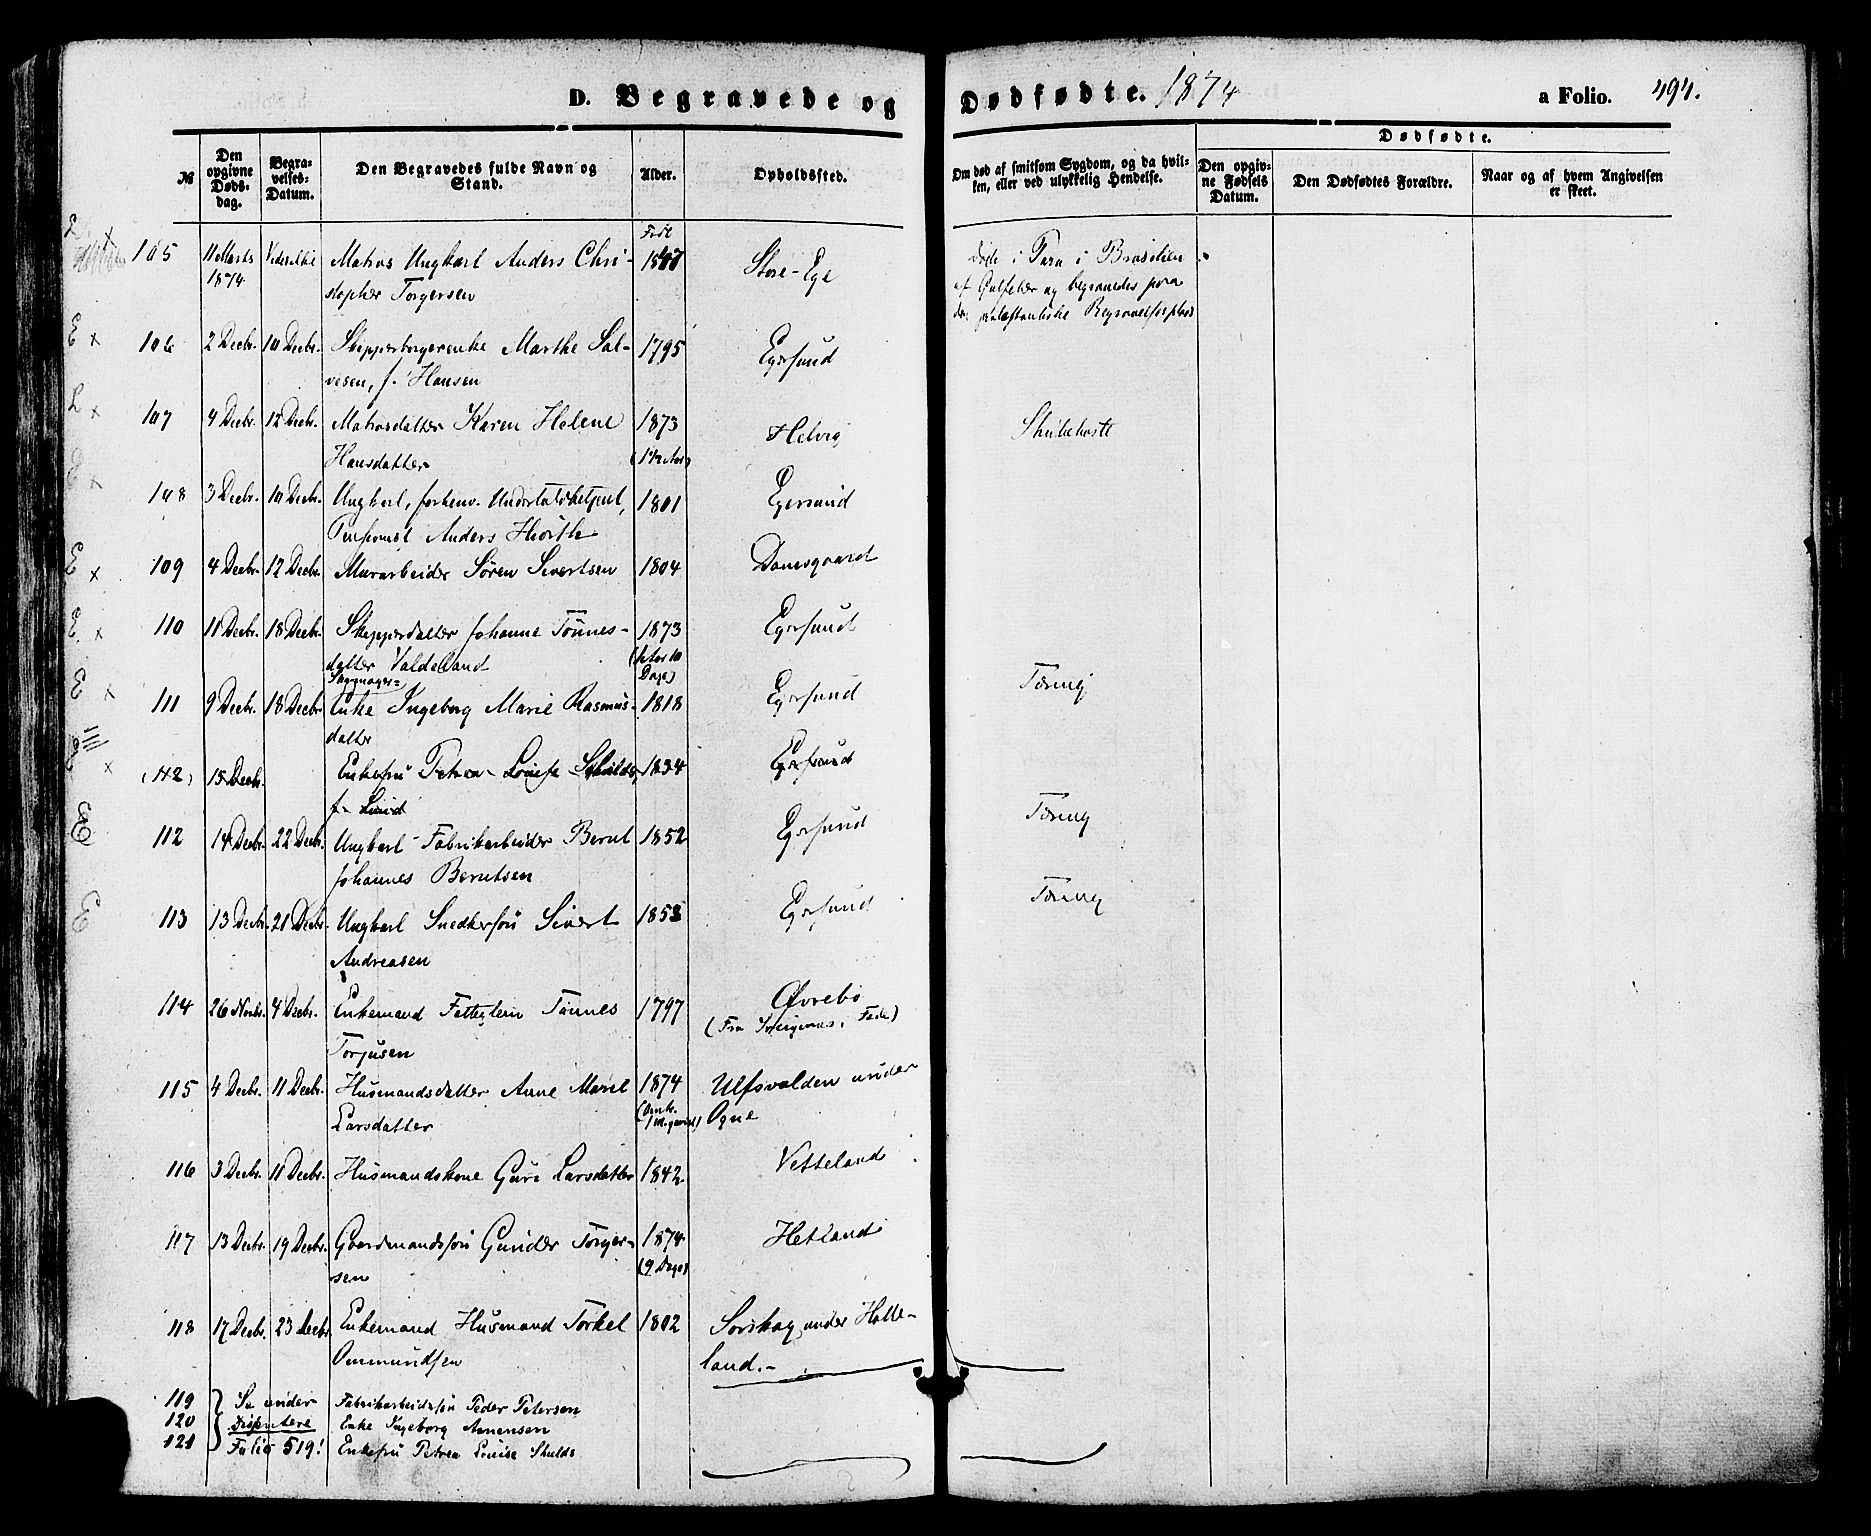 D. Begravede og Dødfødte. 1874 a Folio. 494.
№
Den opgivne Døds-dag.
Begra-velses-Datum.
Den Begravedes fulde Navn og Stand.
Alder.
Opholdssted.
Om død af smitsom Sygdom, og da hvil-ken, eller ved ulykkelig Hendelse.
Dødfødte.
Den opgiv-ne Fødsels Datum.
Den Dødfødtes Forældre.
Naar og af hvem Angivelsen er skeet.
Født
105 11 Marts Matros Ungkarl Anders Chri- 1847 Store-Ege døde i Para i Brasilien
1874 stopher Torgersen af Gulfeber og begravedes paa
den protestantiske Begravelsesplads
E x 106 2 Decbr. 10 Decbr. Skipperborgerenke Marthe Sal- 1795 Egersund
vesen, f. Hansen
L x 107 4 Decbr. 12 Decbr. Matrosdatter Karen Helene 1873 Helvig Strubehoste
Hansdatter (1½ Aar)
E x 108 3 Decbr. 10 Decbr. Ungkarl, forhenv. Undertoldbetjent, 1801 Egersund
Pensionist Anders Hiorth
E x 109 4 Decbr. 12 Decbr. Murarbeider Sören Sivertsen 1804 Damsgaard
E. x 110 11 Decbr. 18 Decbr. Skipperdatter Johanne Tönnes- 1873 Egersund
datter Valdeland (1 Aar 10 Dage)
E x 111 9 Decbr. 18 Decbr Enke Ingeborg Marie Rasmus- 1818 Egersund Tæring
datter
E x (112) 15 Decbr. Enkefru Petrea Louise Skulds, 1834 Egersund
f. Lund
E 112 14 Decbr. 22 Decbr. Ungkarl Fabrikarbeider Bernt 1852 Egersund Tæring
Johannes Berntsen
E 113 13 Decbr. 21 Decbr. Ungkarl Snedkersön Sivert 1853 Egersund Tæring
Andreasen
114 26 Novbr. 4 Decbr. Enkemand Fattiglem Tönnes 1797 Øvrebö
Torjusen (Fra i Fede)
115 4 Decbr. 11 Decbr. Husmandsdatter Anne Marie 1874 Ulfsvolden under
Larsdatter (Omtr. 1 M. gammel) Ogne
116 3 Decbr. 11 Decbr. Husmandskone Guri Larsdatter 1842 Vetteland
117 13 Decbr. 19 Decbr. Gaardmandssön Gunder Torger- 1874 Hetland
sen (9 Dage)
118 17 Decbr. 23 Decbr Enkemand Husmand Torkel 1802 Sorskog under Helle-
Ommundsen land.-
119 Se under Fabrikarbeidersön Peder Petersen
120 Enke Ingeborg Asmensen
121 Folio 519! Enkefru Petrea Louise Skulds